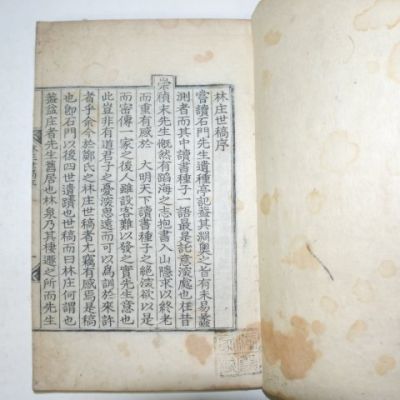 林庄世稿序
嘗讀石門先生遺種亭記蓋其淵奧之旨有未易蠡
測者而其中讀書種子一語最是託意深處也在昔
崇禎末先生慨然有蹈海之志抱書入山隱求以終老
而重有感於 大明天下讀書種子之絕深欲以是
而密傳一家之後人雖設客難以發之實先生意也
此豈非有道君子之憂深思遠而可以爲訓於來許
者乎余今於鄭氏之林庄世稿者尤竊有感焉是稿
也卽石門以後四世遺蹟也世稿而曰林庄何謂也
蓋益庄者先生舊居也林泉乃其棲遷之所而先生